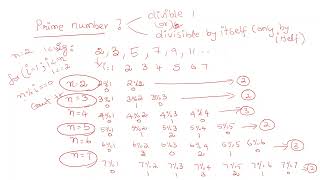 Prime number ? divisible 1
(or)
divisible by itself (only by itself)
2, 3, 5, 7, 9, 11 ...
n=2
for(i=1; i<=n
n%i=0
i=1 2 3 4 5 6 7
n=2 2%1 2%2 → 2
0 0
n=3 3%1 3%2 3%3 → 2
n=4 4%1 4%2 4%3 4%4 → 3
0 0 1 0
n=5 5%1 5%2 5%3 5%4 5%5 → 2
0 1 2 1 0
n=6 6%1 6%2 6%3 6%4 6%5 6%6
n=7 7%1 7%2 7%3 7%4 7%5 7%6 7%7 → 2
0 1 1 3 2 1 0